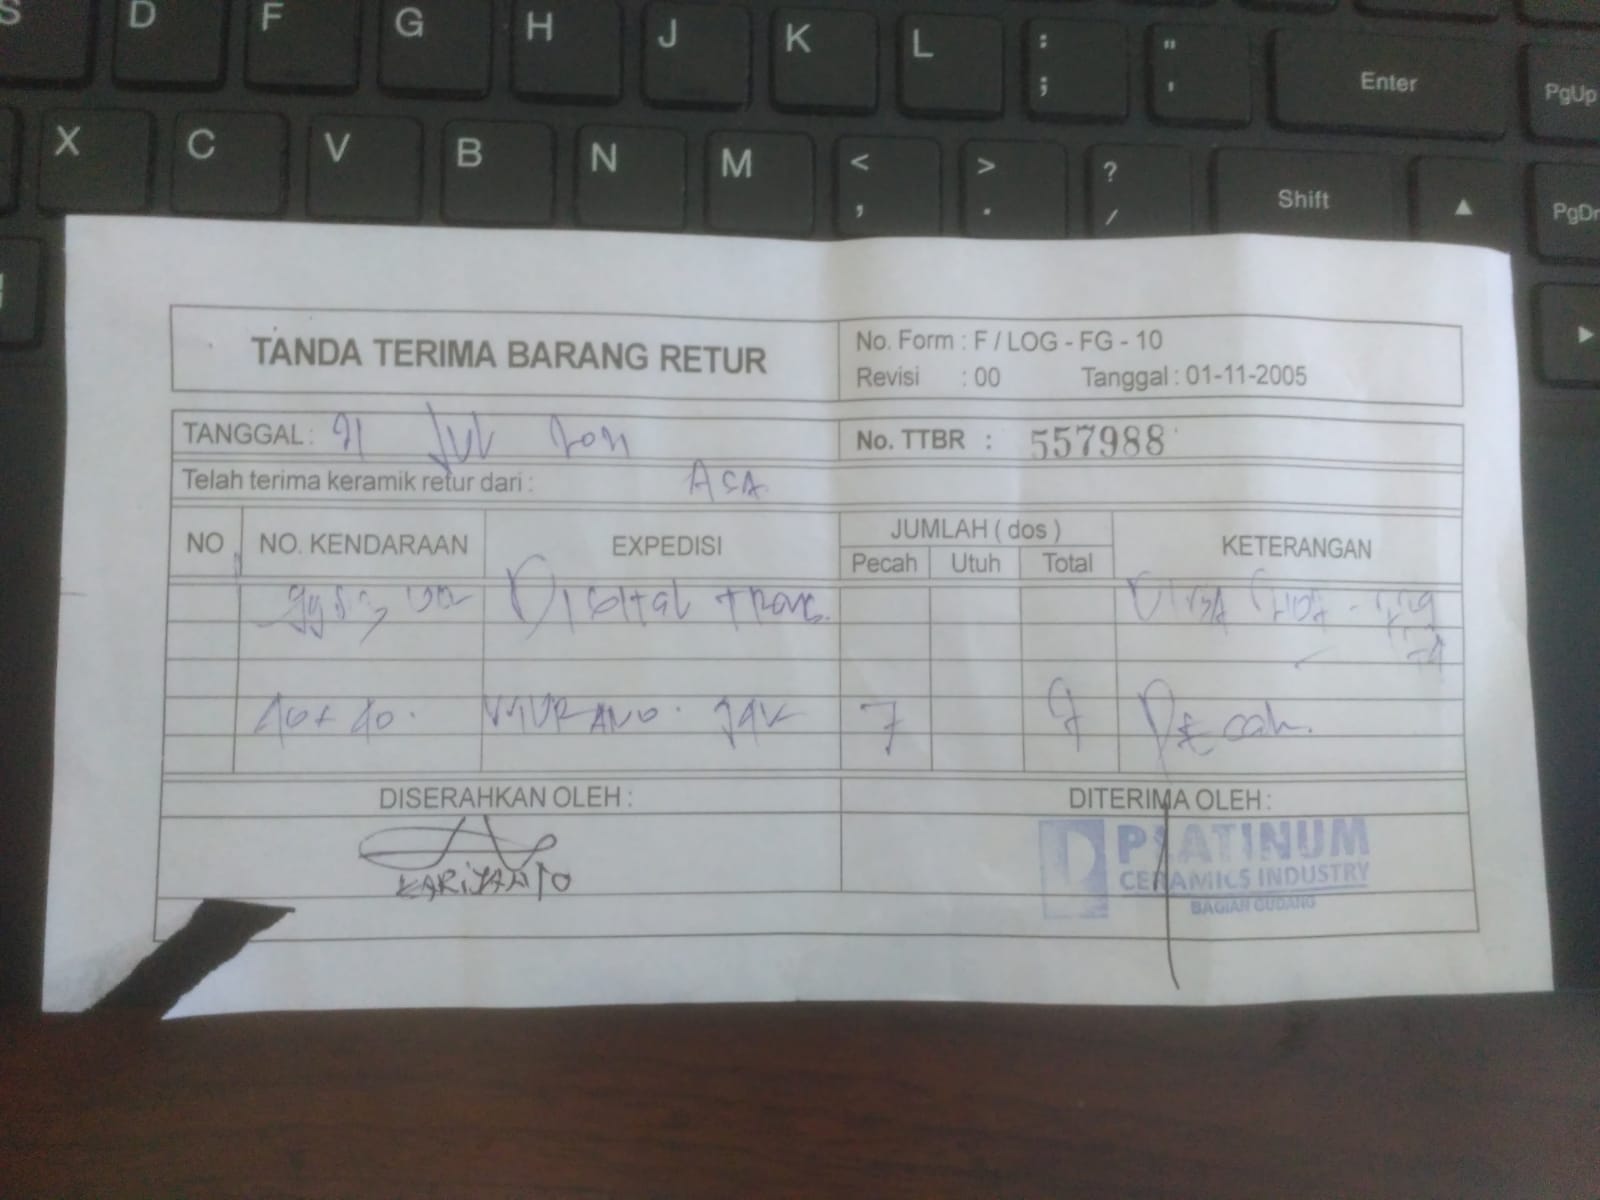 S D F G H J K L : ; " ' Enter PgUp
X C V B N M < , > . ? / Shift ▲ PgDn
▶
TANDA TERIMA BARANG RETUR
No. Form : F / LOG - FG - 10
Revisi : 00 Tanggal : 01-11-2005
TANGGAL : 21 Jul
No. TTBR : 557988
Telah terima keramik retur dari : ASA
NO NO. KENDARAAN EXPEDISI JUMLAH ( dos ) KETERANGAN
Pecah Utuh Total
Digital Trans.
40 x 40. MURANO. 7 7 Pecah.
DISERAHKAN OLEH : DITERIMA OLEH :
KARIYANTO
PLATINUM
CERAMICS INDUSTRY
BAGIAN GUDANG